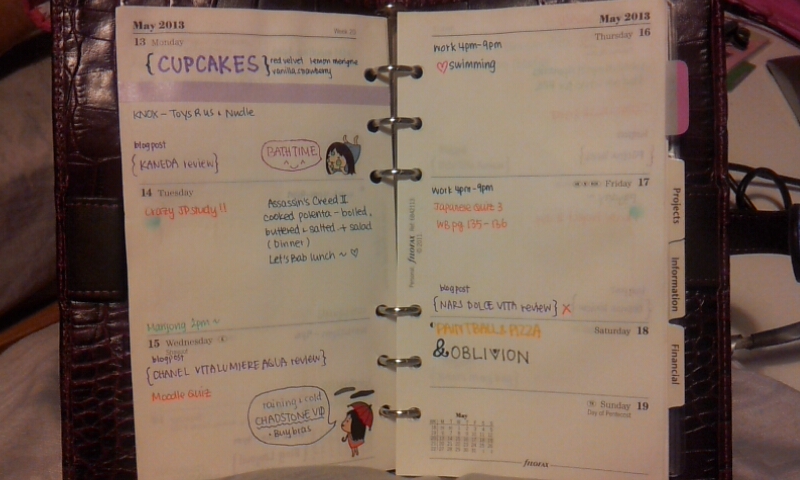 May 2013
13 Monday
{CUPCAKES} red velvet lemon meringue
vanilla strawberry
KNOX - Toys R us & Nudle
blog post
{KANEDA review}
BATH TIME
14 Tuesday
Crazy JP study!!
Assassin's Creed II
cooked polenta - boiled,
buttered & salted + salad
(Dinner)
Let's Bab lunch ~ ♡
Mahjong 2pm ~
15 Wednesday
blog post
{CHANEL VITALUMIERE AQUA review}
Moodle Quiz
raining & cold
CHADSTONE
+ Buy bras
May 2013
Thursday 16
work 4pm-9pm
♡ swimming
Friday 17
work 4pm-9pm
Japanese Quiz 3
WB pg 135-136
blog post
{NARS DOLCE VITA review} X
Saturday 18
PIZZA
& OBLIVION
Sunday 19
Day of Pentecost
May
filofax
Personal filofax
Projects
Information
Financial